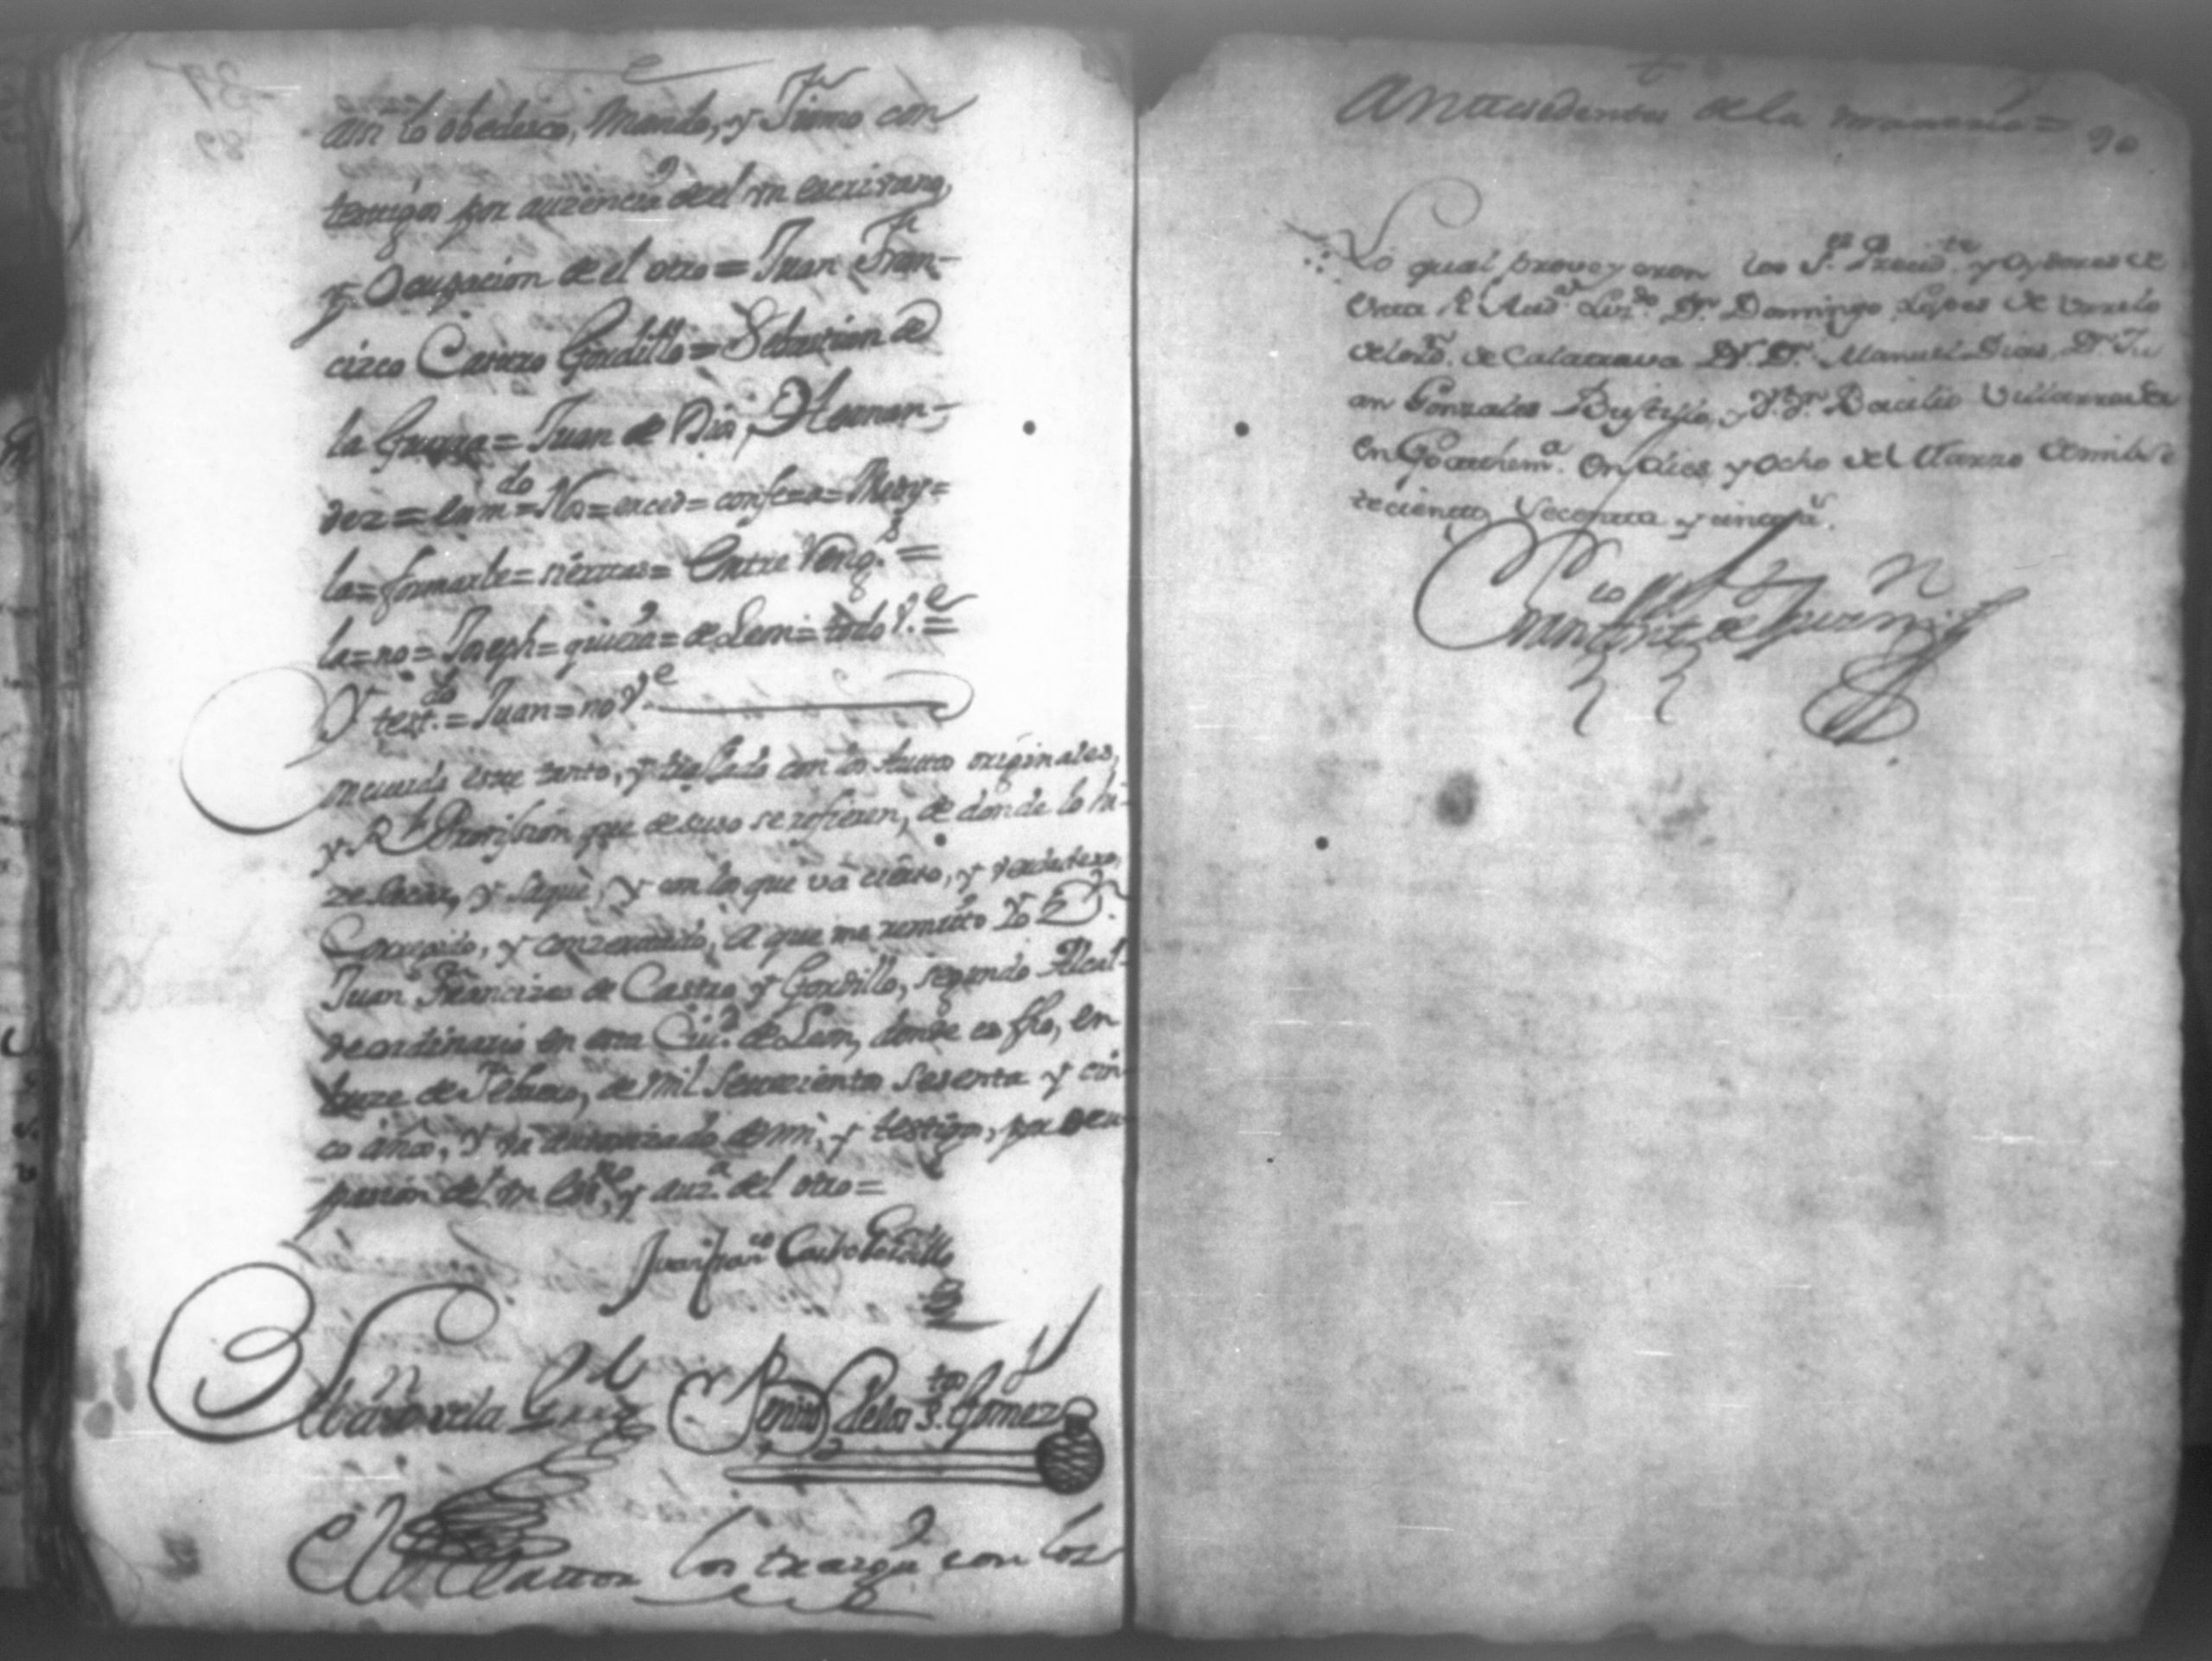 assi lo obedesco, Mando, y Firmo con
testigos por auzencia de el vn escrivano,
y Ocupacion de el otro = Juan Fran-
cizco Castro Gordillo = Sebastian de
la Guerra = Juan de Dios Hernan-
dez = enm.do = No = exced = confe = o = Mery =
la = formarle = = Entre Reng.s =
la = no = Joseph = = de Leon = todo V.e =
Y test.do = Juan = no V.e
Concuerda este tanto, y traslado con los Autos originales,
y R.l Provission que de suso se refieren, de donde lo hi-
ze sacar, y saqué, y con los que va cierto, y verdadero,
Corregido, y conzertado, a que me remito Yo D.n
Juan Francizco de Castro y Gordillo, segundo Alcal-
de ordinario en esta Ciu.d de Leon, donde es fho, en
treze de Febrero, de mil setecientos sesenta y cin-
co años, y va autorizado de mi, y testigos, por ocu-
pasion del vn Es.no y auz.a del otro =
Juan Fran.co Castro Gordillo
de la
de la S.ta Gomez
Autos los traiga con los
Antesedentes de la materia =
90
Lo qual proveyeron los S.res Presid.te y Oydores de
esta R.l Aud.a Liz.do D.n Domingo Lopes de Urrelo
del orn. de Calatrava D.r D.n Manuel Dias, D.n Ju-
an Gonzales Bustillo, y D.n Basilio Villarrasa
en Goathem.a en dies y ocho del Marzo de mil se
tecientos Secenta y cinco a.s